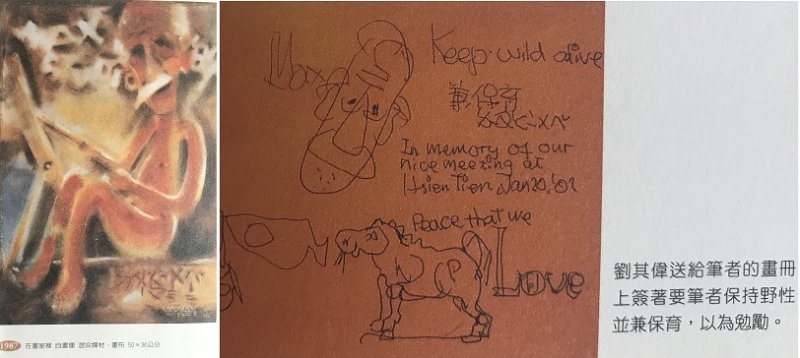 1987 在畫室裡 自畫像 混合媒材、畫布 50×36公分
Max
Keep wild alive
兼保育
In memory of our
nice meeting at
Hsien Tien Jan 20.'02
Peace that we
Love
劉其偉送給筆者的畫冊
上簽著要筆者保持野性
並兼保育，以為勉勵。